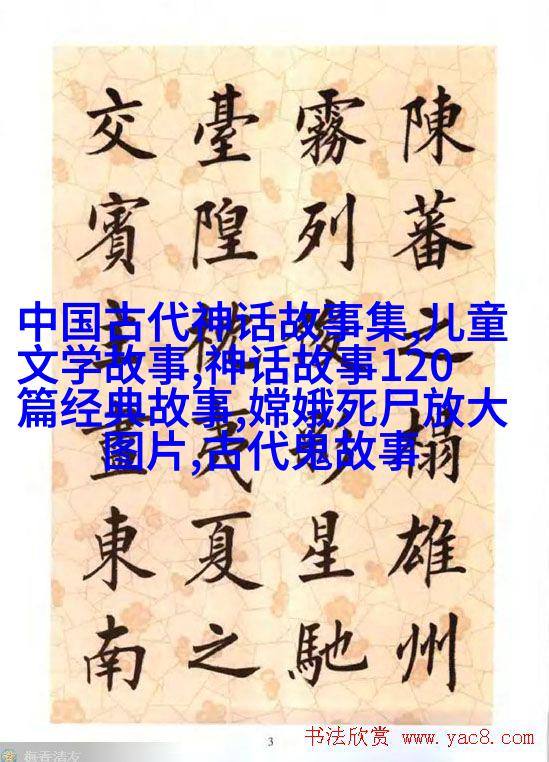 陳蕃之榻雄州
霧列俊彩星馳
臺隍枕夷夏之
交賓主盡東南
中国古代神话故事集,儿童
文学故事,神话故事120
篇经典故事,嫦娥死尸放大
图片,古代鬼故事
3
书法欣赏 www.yac8.com
梅香清友